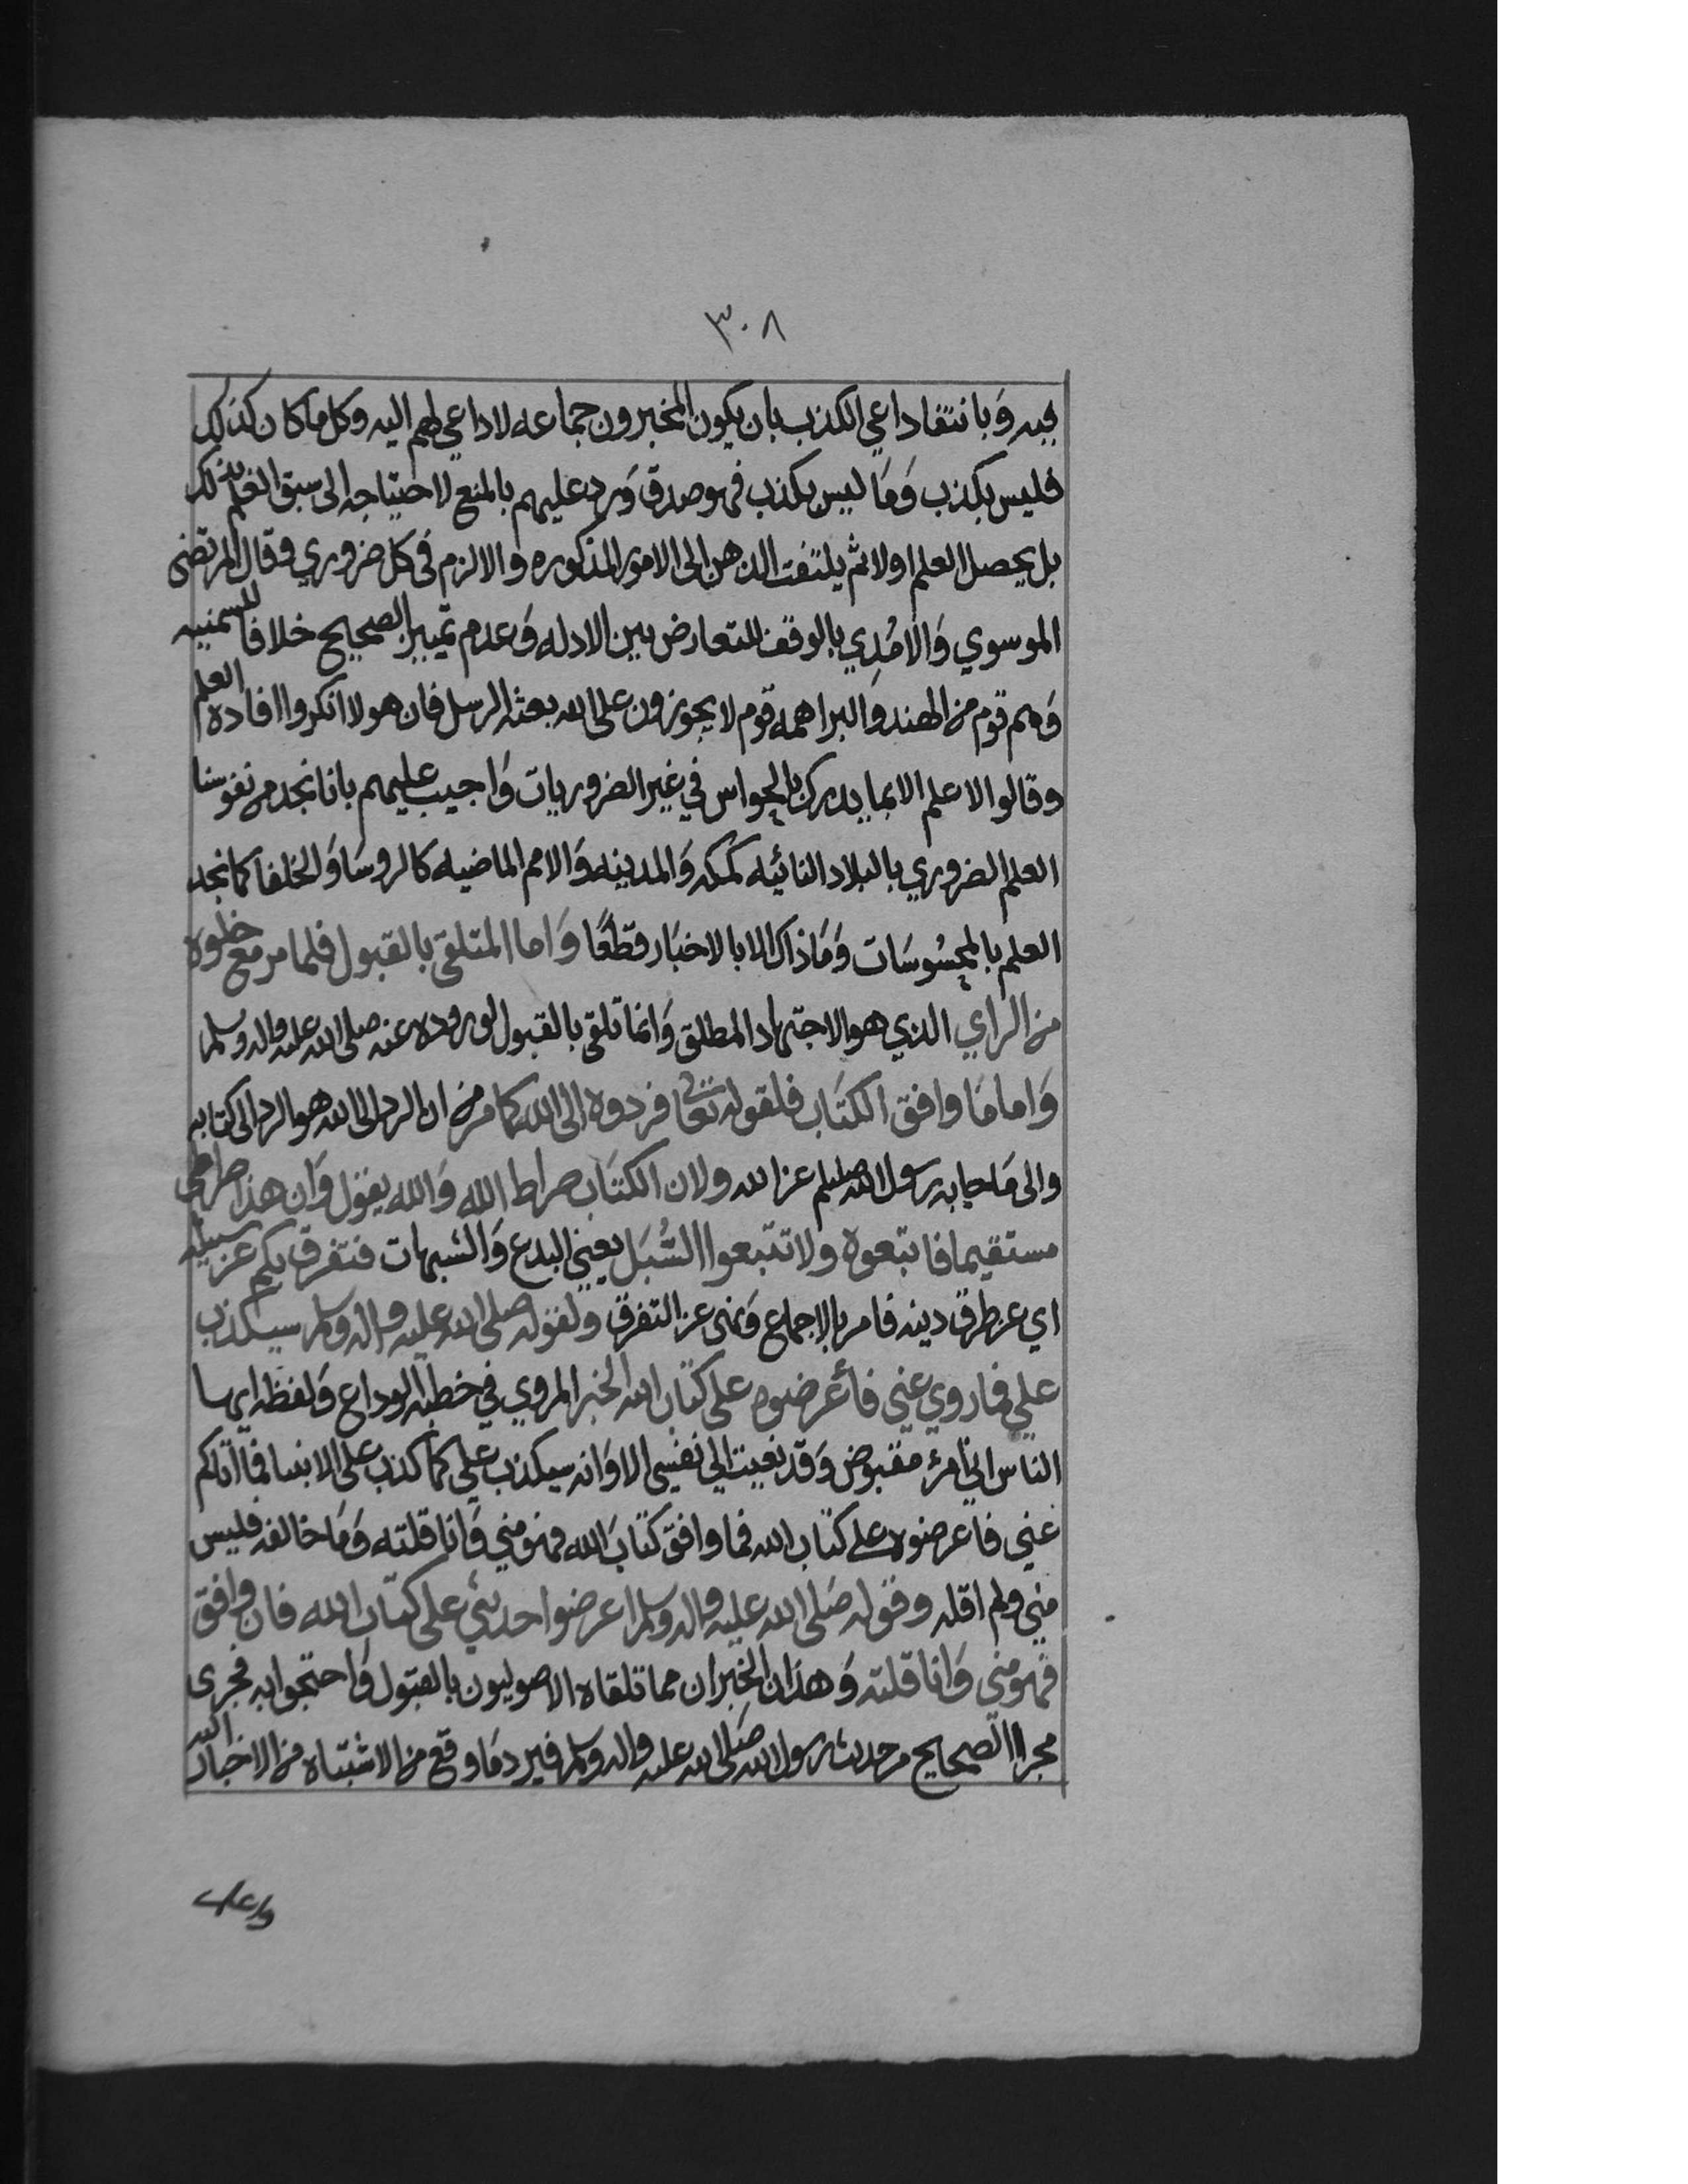 ٣٠٨
فيه وَبانتفا داعي الكذب بان يكون المخبرون جماعه لا داعي لهم اليه وكل ما كان كذلك
فليس بكذب وَمَا ليس بكذب فهو صدق وَرد عليهم بالمنع لاحتياجه الى سبق العلم بذلك
بل يحصل العلم اولا ثم يلتفت الذهن الى الامور المذكوره والا لزم في كل ضروري وقال المرتضى
الموسوي وَالآمُدِي بالوقف للتعارض بين الادله وَعدم تمييز الصحيح خلافا للسمنيه
وَهم قوم من الهند وَالبراهمه قوم لا يجوزون على الله بعثه الرسل فان هولا انكروا افادة العلم
وقالوا لا علم الا بما يدرك بالحواس في غير الضروريات وَاجيب عليهم بانا نجد من نفوسنا
العلم الضروري بالبلاد النائيه كمكه وَالمدينه وَالامم الماضيه كالروسَا وَالخلفا كما نجد
العلم بالمحسُوسَات وَمَا ذاك الا بالاخبَار قطعًا وَاما المتلقى بالقبول فلما مر مع خلوه
من الراي الذي هو الاجتهاد المطلق وَانما تلقى بالقبول لوروده عنه صلى الله عليه واله وسلم
وَاما مَا وافق الكتَاب فلقوله تعالى فردوه الى الله كما مر من ان الرد الى الله هو الرد الى كتابه
والى مَا جا به رسول الله صللم عن الله ولان الكتَاب صراط الله وَالله يقول وَان هذا صراطي
مستقيما فاتبعوه ولا تتبعوا السُّبَل يعني البدع وَالشبهات فتفرق بكم عن سبيله
اي عن طرق دينه فامر بالاجماع وَنهى عن التفرق ولقوله صلى الله عليه واله وسلم سيكذب
علي فما روي عني فأعرضوه على كتاب الله الخبر المروي في خطبه الوداع وَلفظه ايها
الناس اني امرؤ مقبوض وَقد نعيت الي نفسي الا وَانه سيكذب علي كما كذب على الانبيا فما اتاكم
عني فاعرضوه على كتاب الله فما وافق كتابَ الله فهو مني وَانا قلته وَمَا خالفه فليس
مني ولم اقله وقوله صَلى الله عليه واله وسلم اعرضوا حديثي على كتاب الله فان وافق
فهو مني وَانا قلته وَهذان الخبران مما تلقاه الاصوليون بالقبول وَاحتجوا به فجرى
مجرا الصحيح من حديث رسول الله صَلى الله عليه واله وسلم فيرد مَا وقع من الاشتباه من الاخبار اليه